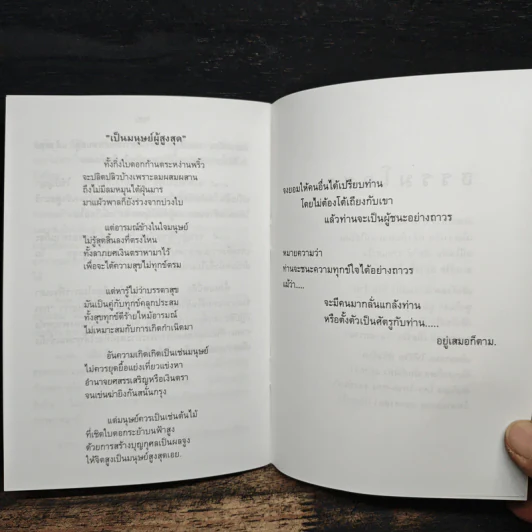 "เป็นมนุษย์ผู้สูงสุด"
ทั้งกิ่งใบดอกก้านตระหง่านพริ้ว
จะปลิดปลิวบ้างเพราะลมผสมผสาน
ถึงไม่มีลมหมุนใต้ฝุ่นมาร
มาแผ้วพาลก็ยังร่วงจากบ่วงใบ
แต่อารมณ์ข้างในใจมนุษย์
ไม่รู้สุดสิ้นลงที่ตรงไหน
ทั้งลาภยศเงินตราหามาไว้
เพื่อจะได้ความสุขไม่ทุกข์ตรม
แต่หารู้ไม่ว่าบรรดาสุข
มันเป็นคู่กับทุกข์คลุกประสม
ทั้งสุขทุกข์ดีร้ายใหม้อารมณ์
ไม่เหมาะสมกับการเกิดกำเนิดมา
อันความเกิดเกิดเป็นเช่นมนุษย์
ไม่ควรยุดยื้อแย่งเที่ยวแข่งหา
อำนาจยศสรรเสริญหรือเงินตรา
จนเข่นฆ่ายิงกันสนั่นกรุง
แต่มนุษย์ควรเป็นเช่นต้นไม้
ที่เชิดใบดอกระย้าบนฟ้าสูง
ด้วยการสร้างบุญกุศลเป็นผลจูง
ให้จิตสูงเป็นมนุษย์สูงสุดเอย.
จงยอมให้คนอื่นได้เปรียบท่าน
โดยไม่ต้องโต้เถียงกับเขา
แล้วท่านจะเป็นผู้ชนะอย่างถาวร
หมายความว่า
ท่านจะชนะความทุกข์ใจได้อย่างถาวร
แม้ว่า.....
จะมีคนมากลั่นแกล้งท่าน
หรือตั้งตัวเป็นศัตรูกับท่าน.....
อยู่เสมอก็ตาม.